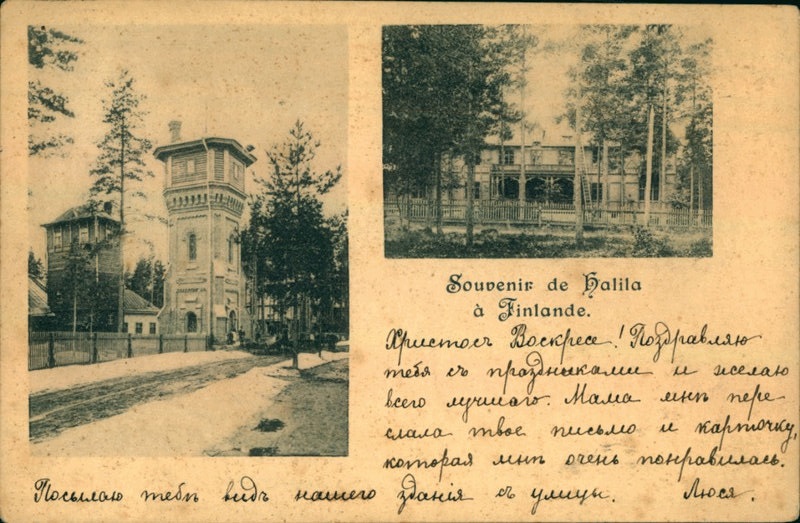 Souvenir de Halila
à Finlande.
Христосъ Воскресе! Поздравляю
тебя съ праздниками и желаю
всего лучшаго. Мама мнѣ пере
слала твое письмо и карточку,
которая мнѣ очень понравилась.
Посылаю тебѣ видъ нашего зданія съ улицы. Люся.